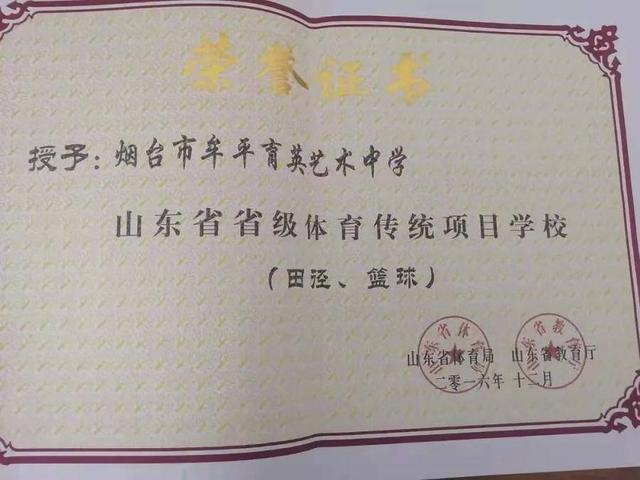 荣誉证书
授予：烟台市牟平育英艺术中学
山东省省级体育传统项目学校
（田泾、篮球）
山东省体育局 山东省教育厅
二零一六年十二月